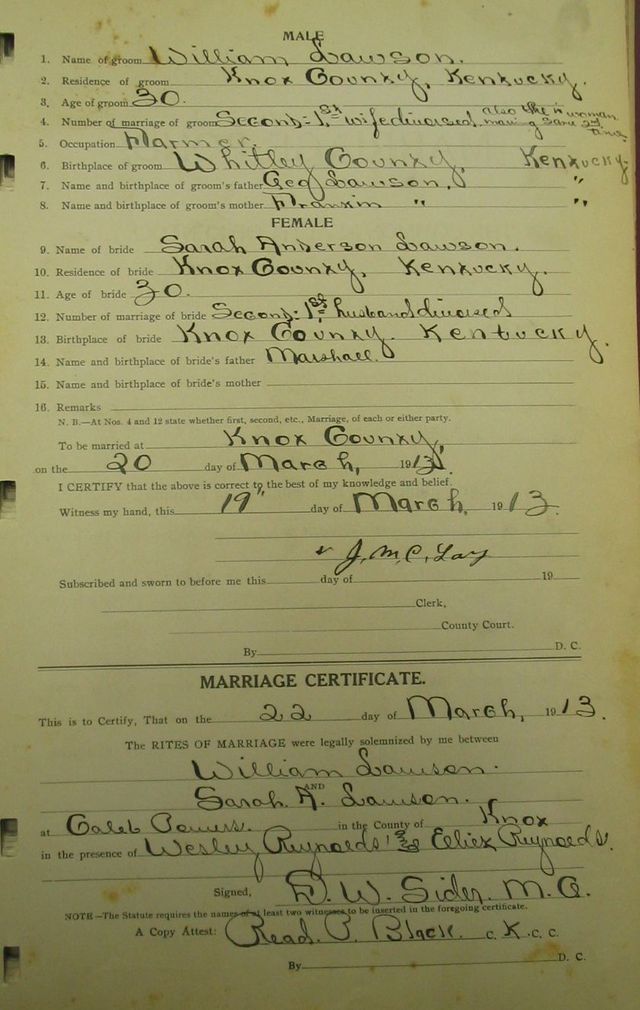 MALE
1. Name of groom William Lawson.
2. Residence of groom Knox County, Kentucky.
3. Age of groom 30.
4. Number of marriage of groom Second:- 1st wife divorced also the woman
5. Occupation Farmer.
6. Birthplace of groom Whitley County, Kentucky.
7. Name and birthplace of groom's father Geo Lawson, "
8. Name and birthplace of groom's mother " "
FEMALE
9. Name of bride Sarah Anderson Lawson.
10. Residence of bride Knox County, Kentucky.
11. Age of bride 30.
12. Number of marriage of bride Second:- 1st husband divorced
13. Birthplace of bride Knox County. Kentucky.
14. Name and birthplace of bride's father Marshall.
15. Name and birthplace of bride's mother
16. Remarks
N. B.—At Nos. 4 and 12 state whether first, second, etc., Marriage, of each or either party.
To be married at Knox County,
on the 20 day of March, 1913.
I CERTIFY that the above is correct to the best of my knowledge and belief.
Witness my hand, this 19" day of March, 1913.
J. M. C. Lay
Subscribed and sworn to before me this day of 19
Clerk,
County Court.
By D. C.
MARRIAGE CERTIFICATE.
This is to Certify, That on the 22 day of March, 1913.
The RITES OF MARRIAGE were legally solemnized by me between
William Lawson.
AND
Sarah A. Lawson.
at Caleb Powers. in the County of Knox
in the presence of Wesley Reynolds & Reynolds.
Signed, D. W. Sider, M. G.
NOTE—The Statute requires the names of at least two witnesses to be inserted in the foregoing certificate.
A Copy Attest: Read. P. Black. C. K. C. C.
By D. C.